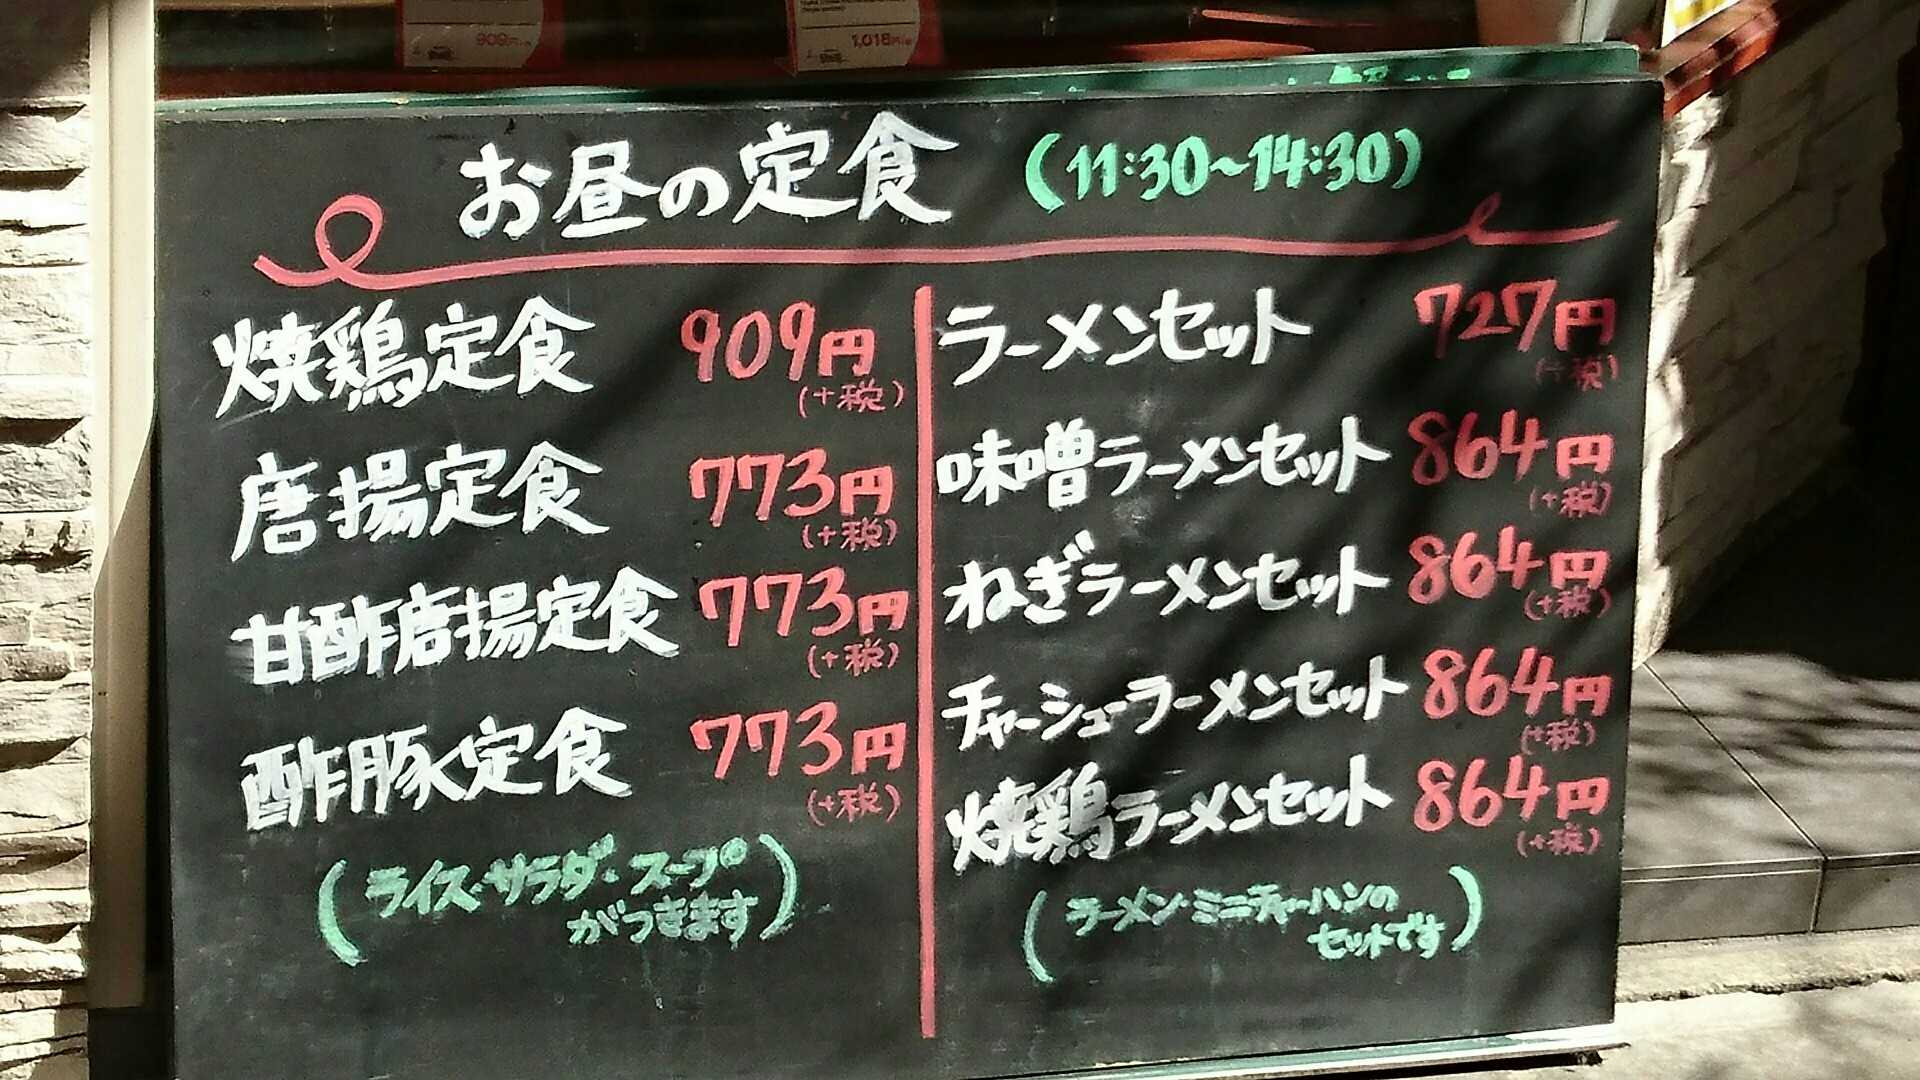 909円
1,018円
お昼の定食 (11:30~14:30)
焼鶏定食 909円
(+税)
唐揚定食 773円
(+税)
甘酢唐揚定食 773円
(+税)
酢豚定食 773円
(+税)
(ライス・サラダ・スープ
がつきます)
ラーメンセット 727円
(+税)
味噌ラーメンセット 864円
(+税)
ねぎラーメンセット 864円
(+税)
チャーシューラーメンセット 864円
(+税)
焼鶏ラーメンセット 864円
(+税)
(ラーメン・ミニチャーハンの
セットです)